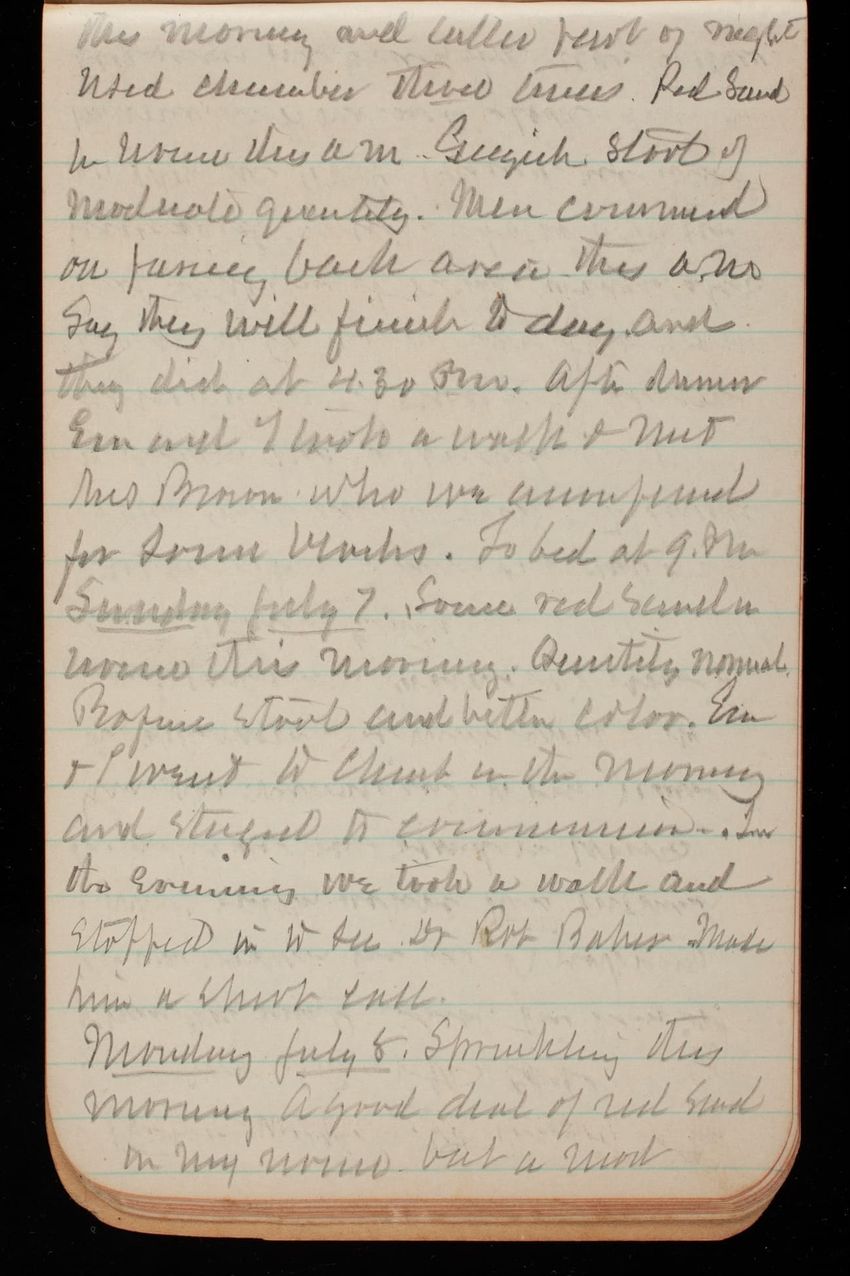 this morning and latter part of night
Used chamber three times. Red Sand
in urine this a m. Greyish stool of
moderate quantity. Men commenced
on paving back area this a.m.
Say they will finish to day and
they did at 4.30 P.m. After dinner
Em and I took a walk & met
Mrs Brown who we accompanied
for some blocks. To bed at 9. P.m
Sunday July 7. Some red sand in
urine this morning. Quantity normal.
stool and better color. Em
& I went to Church in the morning
and stayed to communion. In
the Evening we took a walk and
stopped in to see Dr Rob Baker Made
him a short call.
Monday July 8. Sprinkling this
morning A good deal of red sand
in my urine but a mod